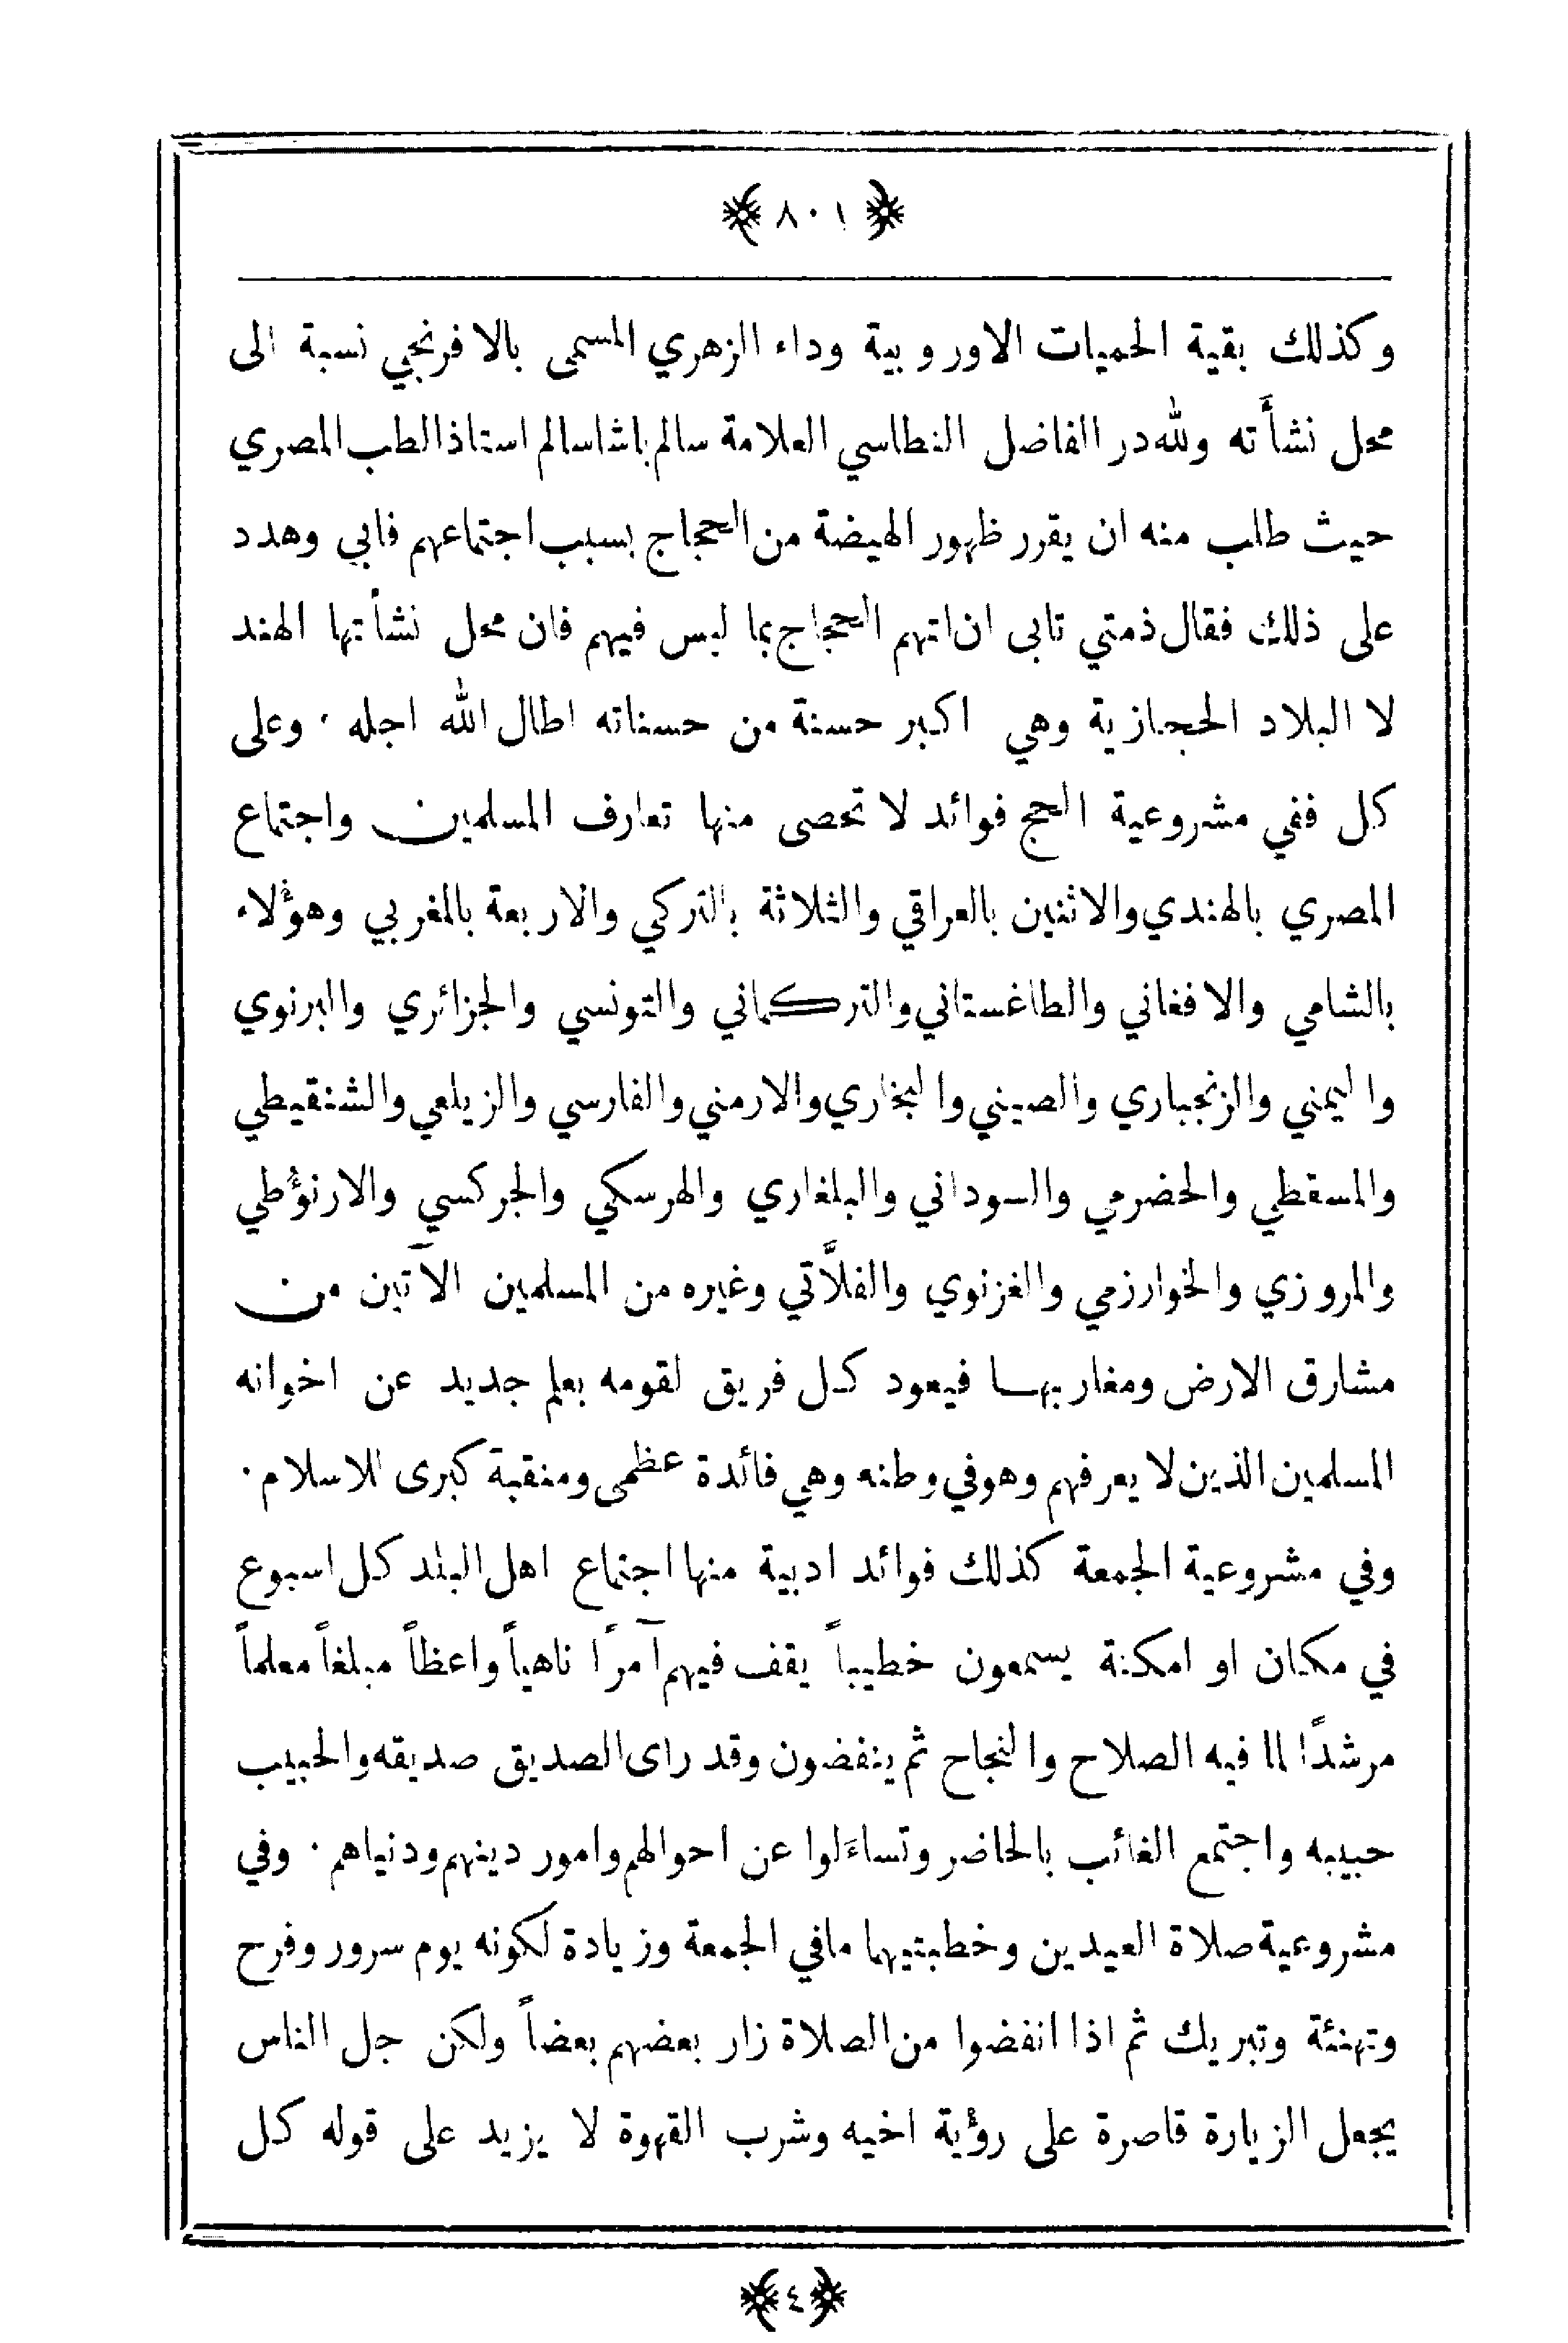 ﴿ ٨٠١ ﴾
وكذلك بقية الحميات الاوروبية وداء الزهري المسمى بالافرنجي نسبة الى
محل نشأته ولله در الفاضل النطاسي العلامة سالم باشا سالم استاذ الطب المصري
حيث طلب منه ان يقرر ظهور الهيضة من الحجاج بسبب اجتماعهم فابي وهدد
على ذلك فقال ذمتي تابى ان اتهم الحجاج بما ليس فيهم فان محل نشأتها الهند
لا البلاد الحجازية وهي اكبر حسنة من حسناته اطال الله اجله ٠ وعلى
كل ففي مشروعية الحج فوائد لا تحصى منها تعارف المسلمين واجتماع
المصري بالهندي والاثنين بالعراقي والثلاثة بالتركي والاربعة بالمغربي وهؤلاء
بالشامي والافغاني والطاغستاني والتركماني والتونسي والجزائري والبرنوي
واليمني والزنجباري والصيني والبخاري والارمني والفارسي والزيلعي والشنقيطي
والمسقطي والحضرمي والسوداني والبلغاري والهرسكي والجركسي والارنؤطي
والمروزي والخوارزمي والغزنوي والفلاَّتي وغيره من المسلمين الآتين من
مشارق الارض ومغاربها فيعود كل فريق لقومه بعلم جديد عن اخوانه
المسلمين الذين لا يعرفهم وهو في وطنه وهي فائدة عظمى ومنقبة كبرى للاسلام ٠
وفي مشروعية الجمعة كذلك فوائد ادبية منها اجتماع اهل البلد كل اسبوع
في مكان او امكنة يسمعون خطيباً يقف فيهم آمرًا ناهياً واعظاً مبلغاً معلماً
مرشدًا لما فيه الصلاح والنجاح ثم ينفضون وقد راى الصديق صديقه والحبيب
حبيبه واجتمع الغائب بالحاضر وتساءَلوا عن احوالهم وامور دينهم ودنياهم ٠ وفي
مشروعية صلاة العيدين وخطبتيهما ما في الجمعة وزيادة لكونه يوم سرور وفرح
وتهنئة وتبريك ثم اذا انفضوا من الصلاة زار بعضهم بعضاً ولكن جل الناس
يجعل الزيارة قاصرة على رؤية اخيه وشرب القهوة لا يزيد على قوله كل
﴿ ٤ ﴾